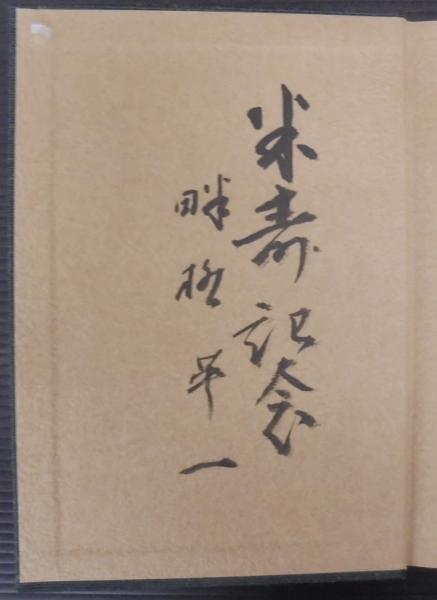 米寿記念
畔柳 一